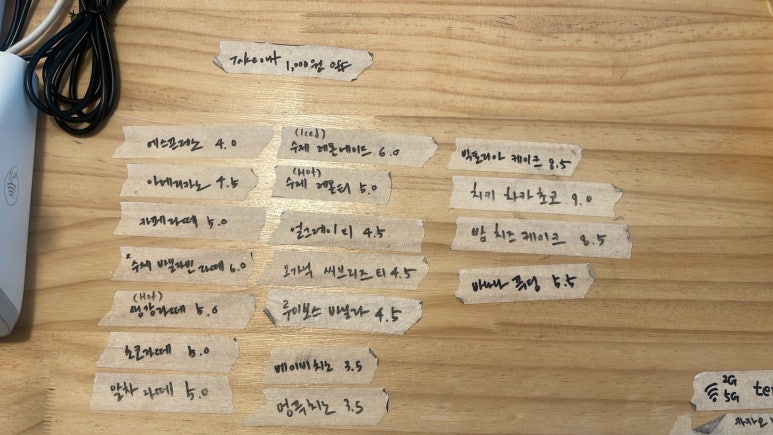 Takeout 1,000원 off
에스프레소 4.0
아메리카노 4.5
카페라떼 5.0
*수제 바닐라빈 라떼 6.0
(Hot)
생강라떼 5.0
초코라떼 5.0
말차 라떼 5.0
(Iced)
수제 레몬에이드 6.0
(Hot)
수제 레몬티 5.0
얼그레이 티 4.5
오가닉 씨브리즈 티 4.5
루이보스 바닐라 4.5
베이비치노 3.5
멍푸치노 3.5
빅토리아 케이크 8.5
치키 차카 초코 9.0
밤 치즈 케이크 8.5
바나나 푸딩 5.5
2G
5G